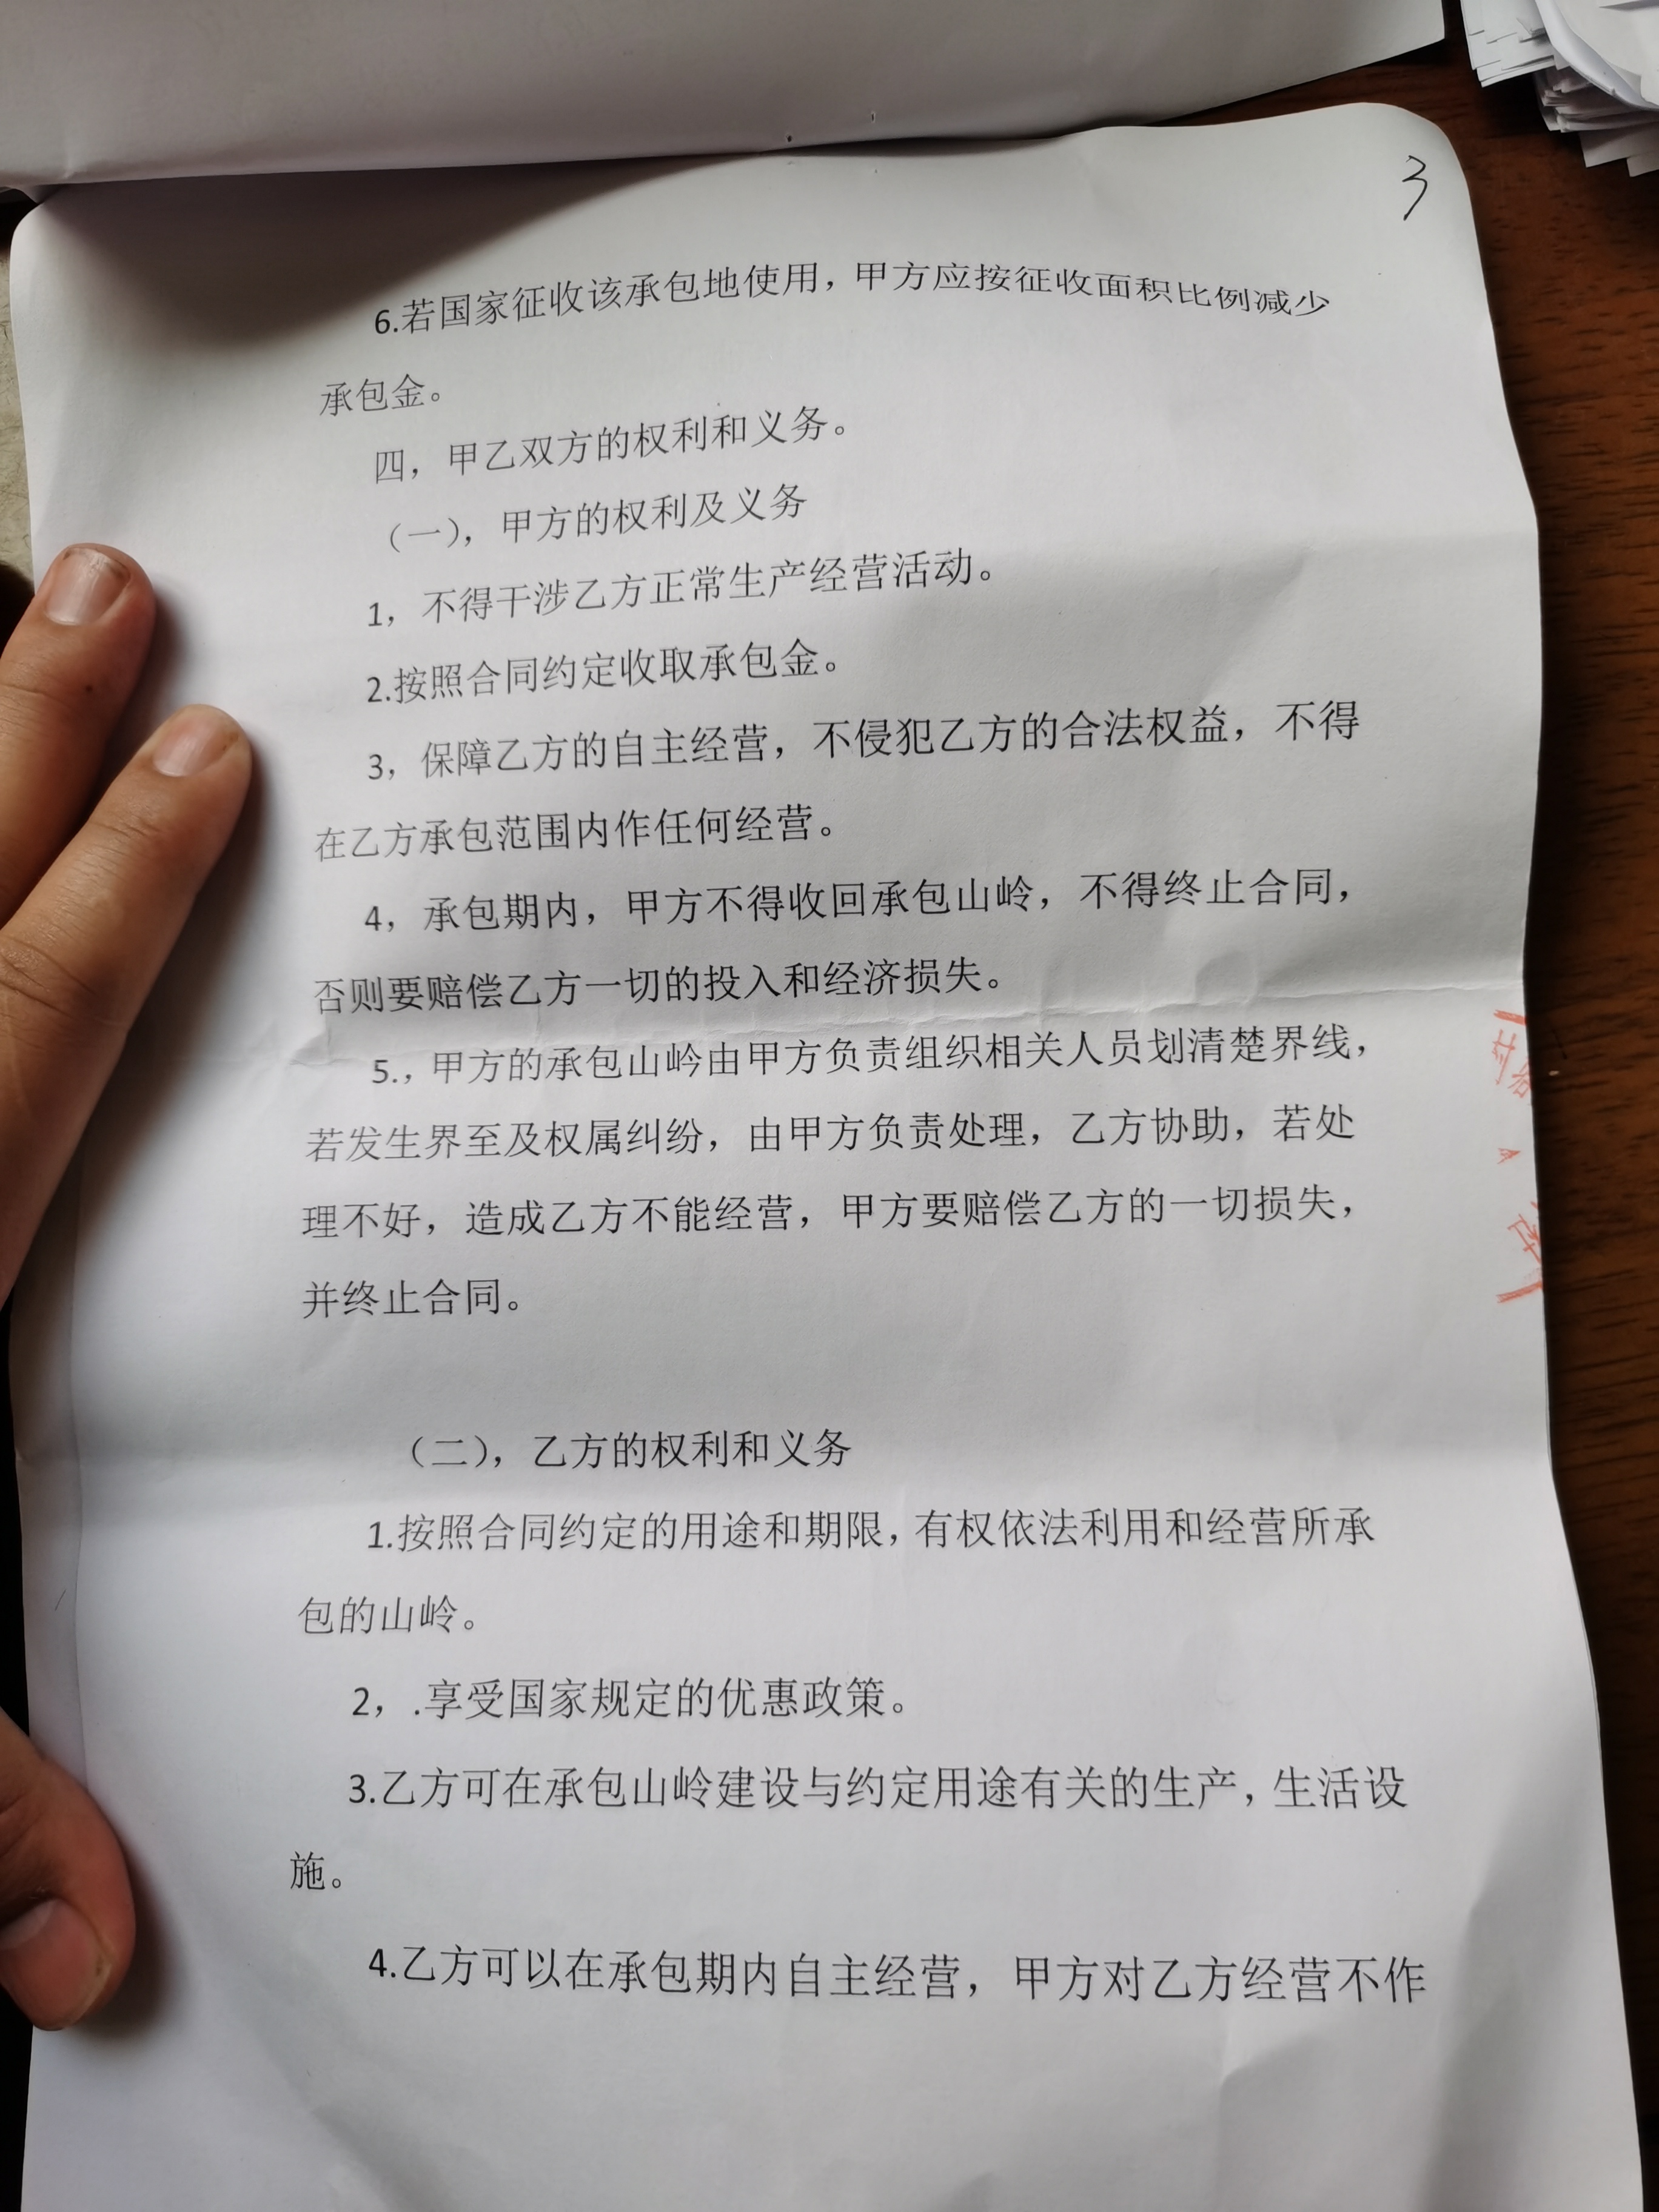 3
6.若国家征收该承包地使用，甲方应按征收面积比例减少
承包金。
四，甲乙双方的权利和义务。
（一），甲方的权利及义务
1，不得干涉乙方正常生产经营活动。
2.按照合同约定收取承包金。
3，保障乙方的自主经营，不侵犯乙方的合法权益，不得
在乙方承包范围内作任何经营。
4，承包期内，甲方不得收回承包山岭，不得终止合同，
否则要赔偿乙方一切的投入和经济损失。
5.，甲方的承包山岭由甲方负责组织相关人员划清楚界线，
若发生界至及权属纠纷，由甲方负责处理，乙方协助，若处
理不好，造成乙方不能经营，甲方要赔偿乙方的一切损失，
并终止合同。
（二），乙方的权利和义务
1.按照合同约定的用途和期限，有权依法利用和经营所承
包的山岭。
2，.享受国家规定的优惠政策。
3.乙方可在承包山岭建设与约定用途有关的生产，生活设
施。
4.乙方可以在承包期内自主经营，甲方对乙方经营不作